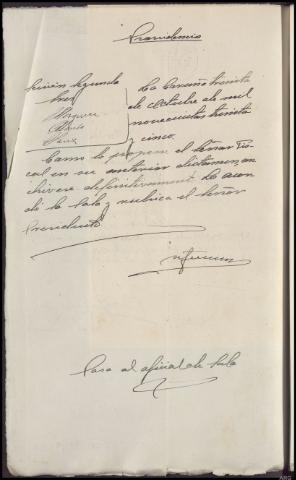 Providencia
Sección Segunda
Sres
La Coruña treinta
de Octubre de mil
novecientos treinta
y cinco.
Como lo propone el señor Fis-
cal en su anterior dictamen, ar-
chívese definitivamente. Lo acor-
dó la Sala y rubrica el señor
Presidente
Pasa al oficial de Sala